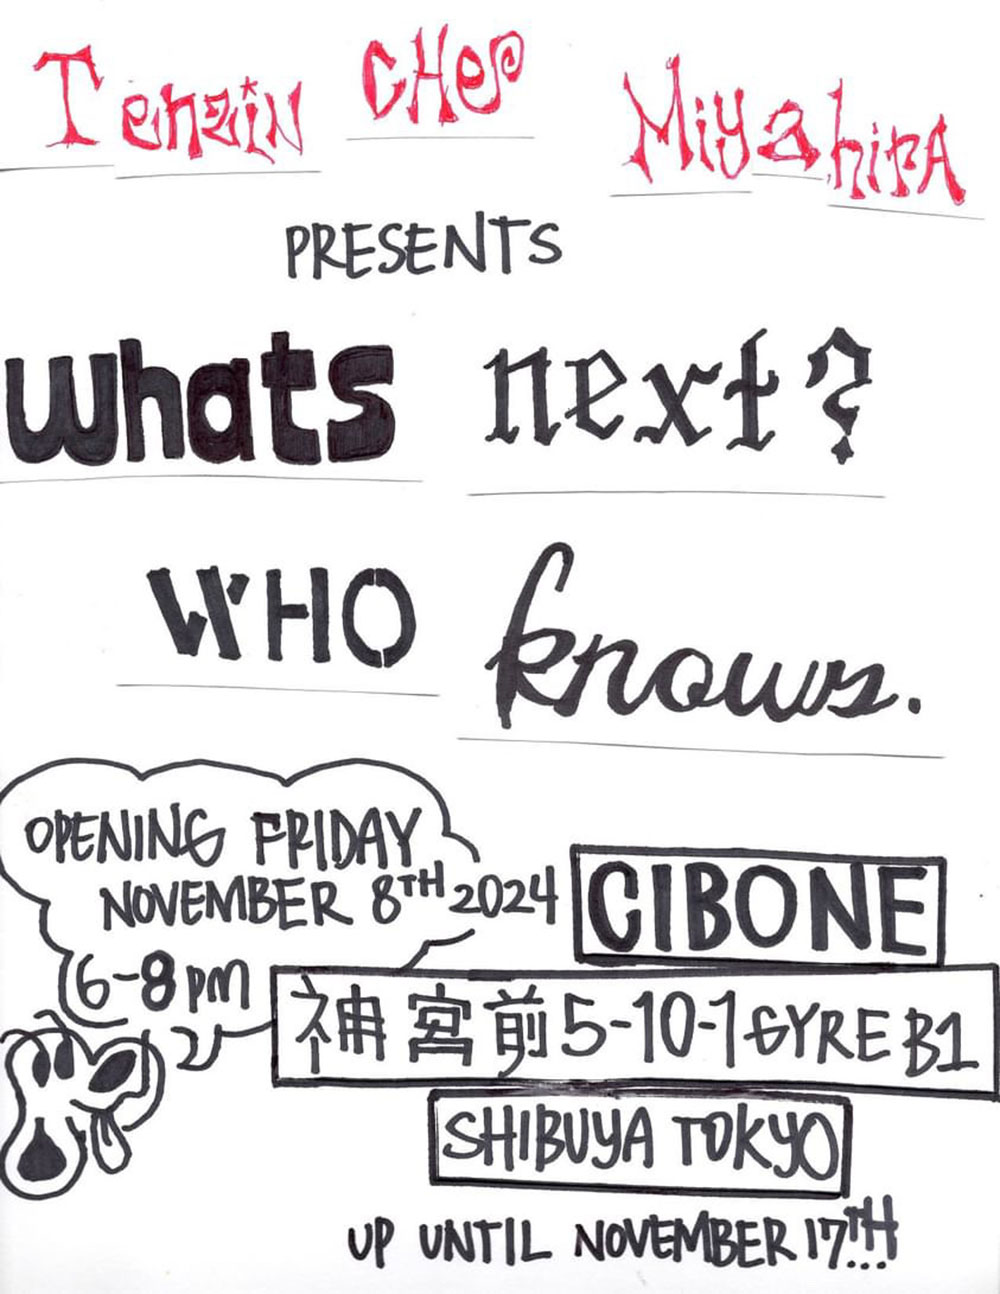 Tenzin CHEP Miyahira
PRESENTS
Whats next?
WHO knows.
OPENING FRIDAY
NOVEMBER 8TH 2024
6-8pm
CIBONE
神宮前5-10-1 GYRE B1
SHIBUYA TOKYO
UP UNTIL NOVEMBER 17TH...